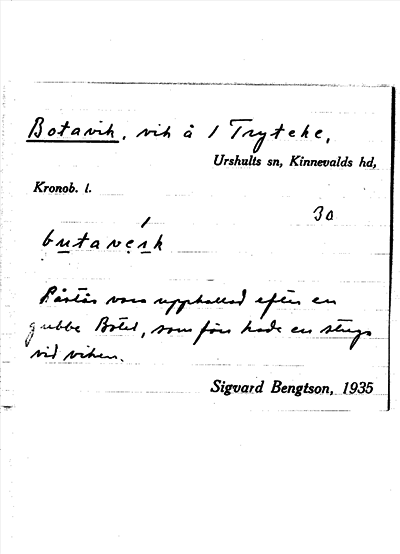 Botavik, vik å / Trytehe,
Urshults sn, Kinnevalds hd,
Kronob. l.
30
butaveik
Påstås vara uppkallad efter en
gubbe Botel, som förr hade en stuga
vid viken.
Sigvard Bengtson, 1935